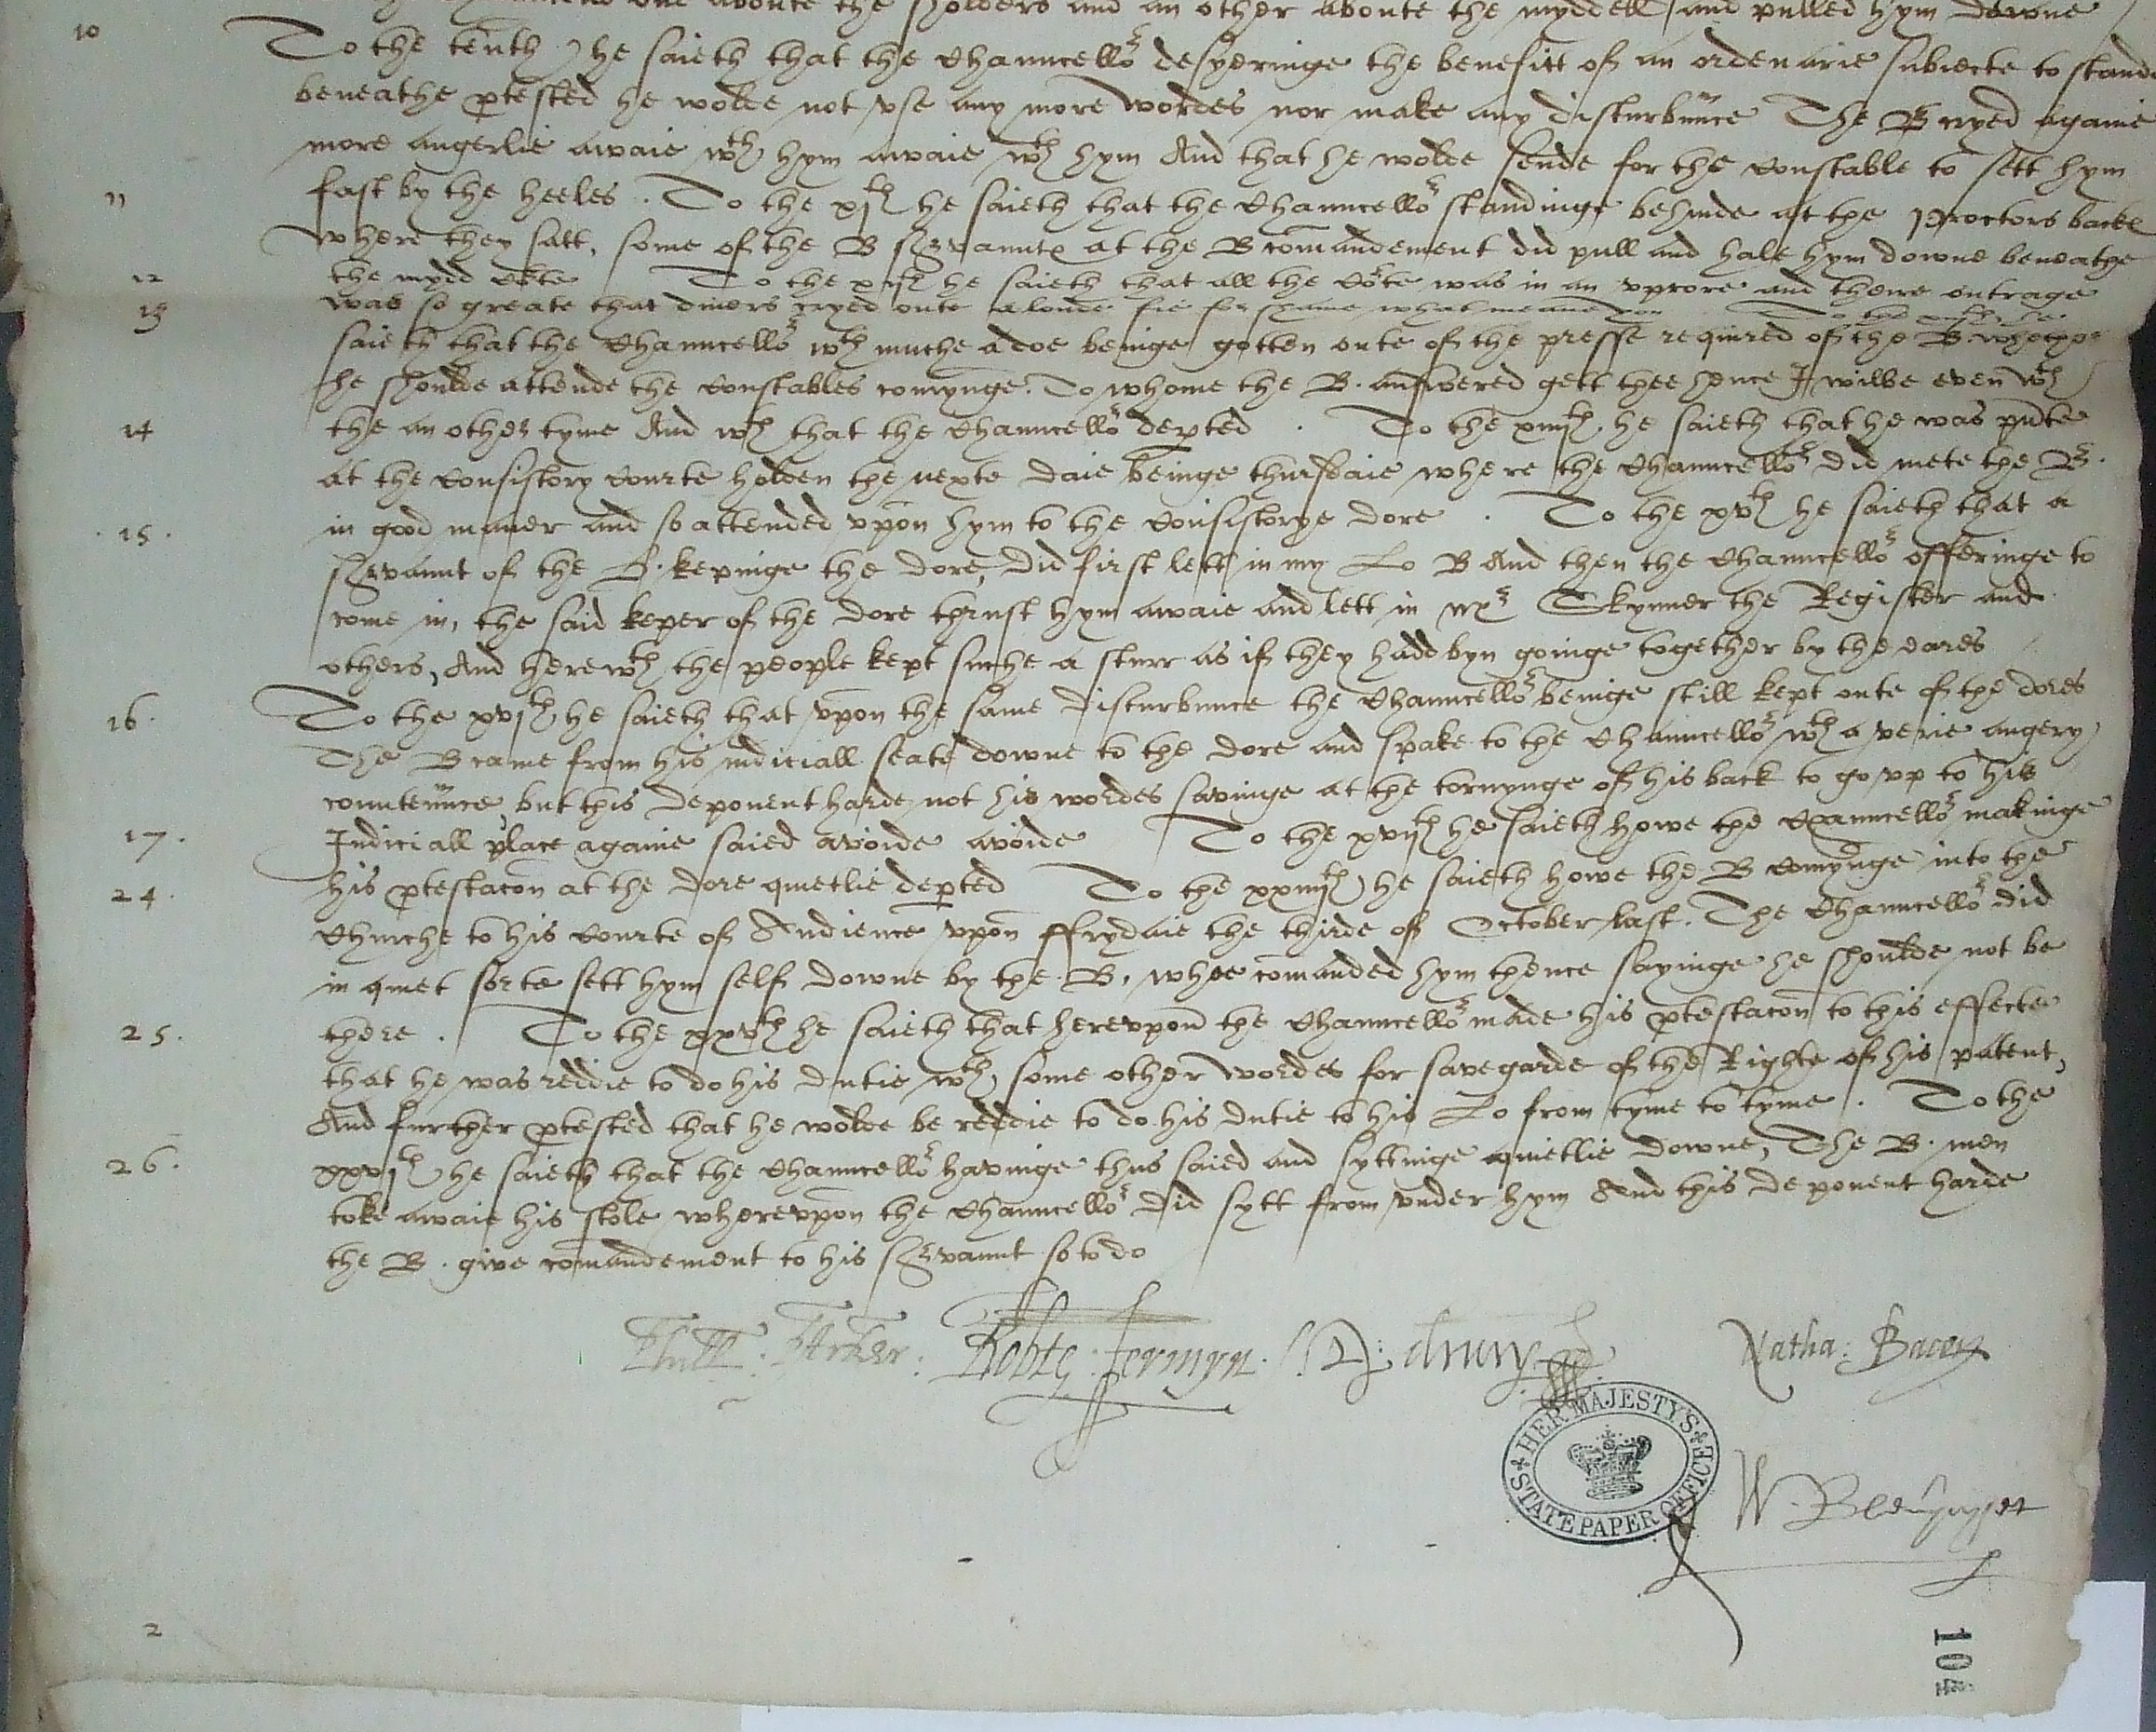 one aboute the sholders and an other aboute the myddell / and pulled hym downe
10 To the tenth he saieth that the Chauncellor desyeringe the benefitt of an ordenarie subiecte to stande
beneathe ptested he wolde not vse any more wordes nor make any disturbunce The B cryed againe
more angerlie awaie wth hym awaie wth hym And that he wolde sende for the constable to sett hym
11 fast by the heeles . To the xjth he saieth that the Chauncellor standinge behinde at the Proctors backe
where they satt, some of the B servauntes at the B comandement did pull and hale hym downe beneathe
12 the mydd To the xijth he saieth that all the was in an vprore and there outrage
13 was so greate that divers cryed oute alonde fie for shame what meane you To the xiijth he
saieth that the Chauncellor wth muche adoe beinge gotten oute of the presse required of the B.
he shoulde attende the constables comynge. To whome the B. answered gett thee hence I wilbe even wth
14 the an other tyme And wth that the Chauncellor depted . To the xiiijth he saieth that he was pnte
at the Consistory Courte holden the nexte daie beinge thursdaie where the Chauncellor did mete the B.
15. in good maner and so attended vpon hym to the Consistorye dore . To the xvth he saieth that a
servaunt of the B. kepinge the dore, did first lett in my Lo B And then the Chauncellor offeringe to
come in, the said keper of the dore thrust hym awaie and lett in Mr Skynner the Register and
others, And herewth the people kept suche a sturr as if they hadd byn goinge together by the eares
16. To the xvjth he saieth that vpon the same disturbunce the Chauncellor beinge still kept oute of the dores
The B came from his iudiciall seate downe to the dore and spake to the Chauncellor wth a verie angery
countenunce, but this deponent harde not his wordes savinge at the tornynge of his back to go vp to his
17. Iudiciall place againe saied avoide avoide To the xvijth he saieth howe the Chauncellor makinge
24. his ptestacon at the dore quietlie depted To the xxiiijth he saieth howe the B comynge into the
Churche to his Courte of Audience vpon ffrydaie the thirde of October last. The Chauncellor did
in quiet sorte sett hym self downe by the B. whoe comanded hym thence sayinge he shoulde not be
25. there . To the xxvth he saieth that herevpon the Chauncellor made his ptestacon to this effecte
that he was reddie to do his dutie wth some other wordes for savegarde of the Righte of his patent,
And further ptested that he wolde be reddie to do his dutie to his Lo from tyme to tyme . To the
26. xxvjth he saieth that the Chauncellor havinge thus saied and syttinge quietlie downe, The B. men
toke awaie his stole wherevpon the Chauncellor did sytt from vnder hym And this deponent harde
the B. give comandement to his servaunt so to do
Phill. Parker: Robte Jermyn. D: drury Natha: Bacon
HER MAJESTY'S STATE PAPER OFFICE
W. Blenhaysset
2
104